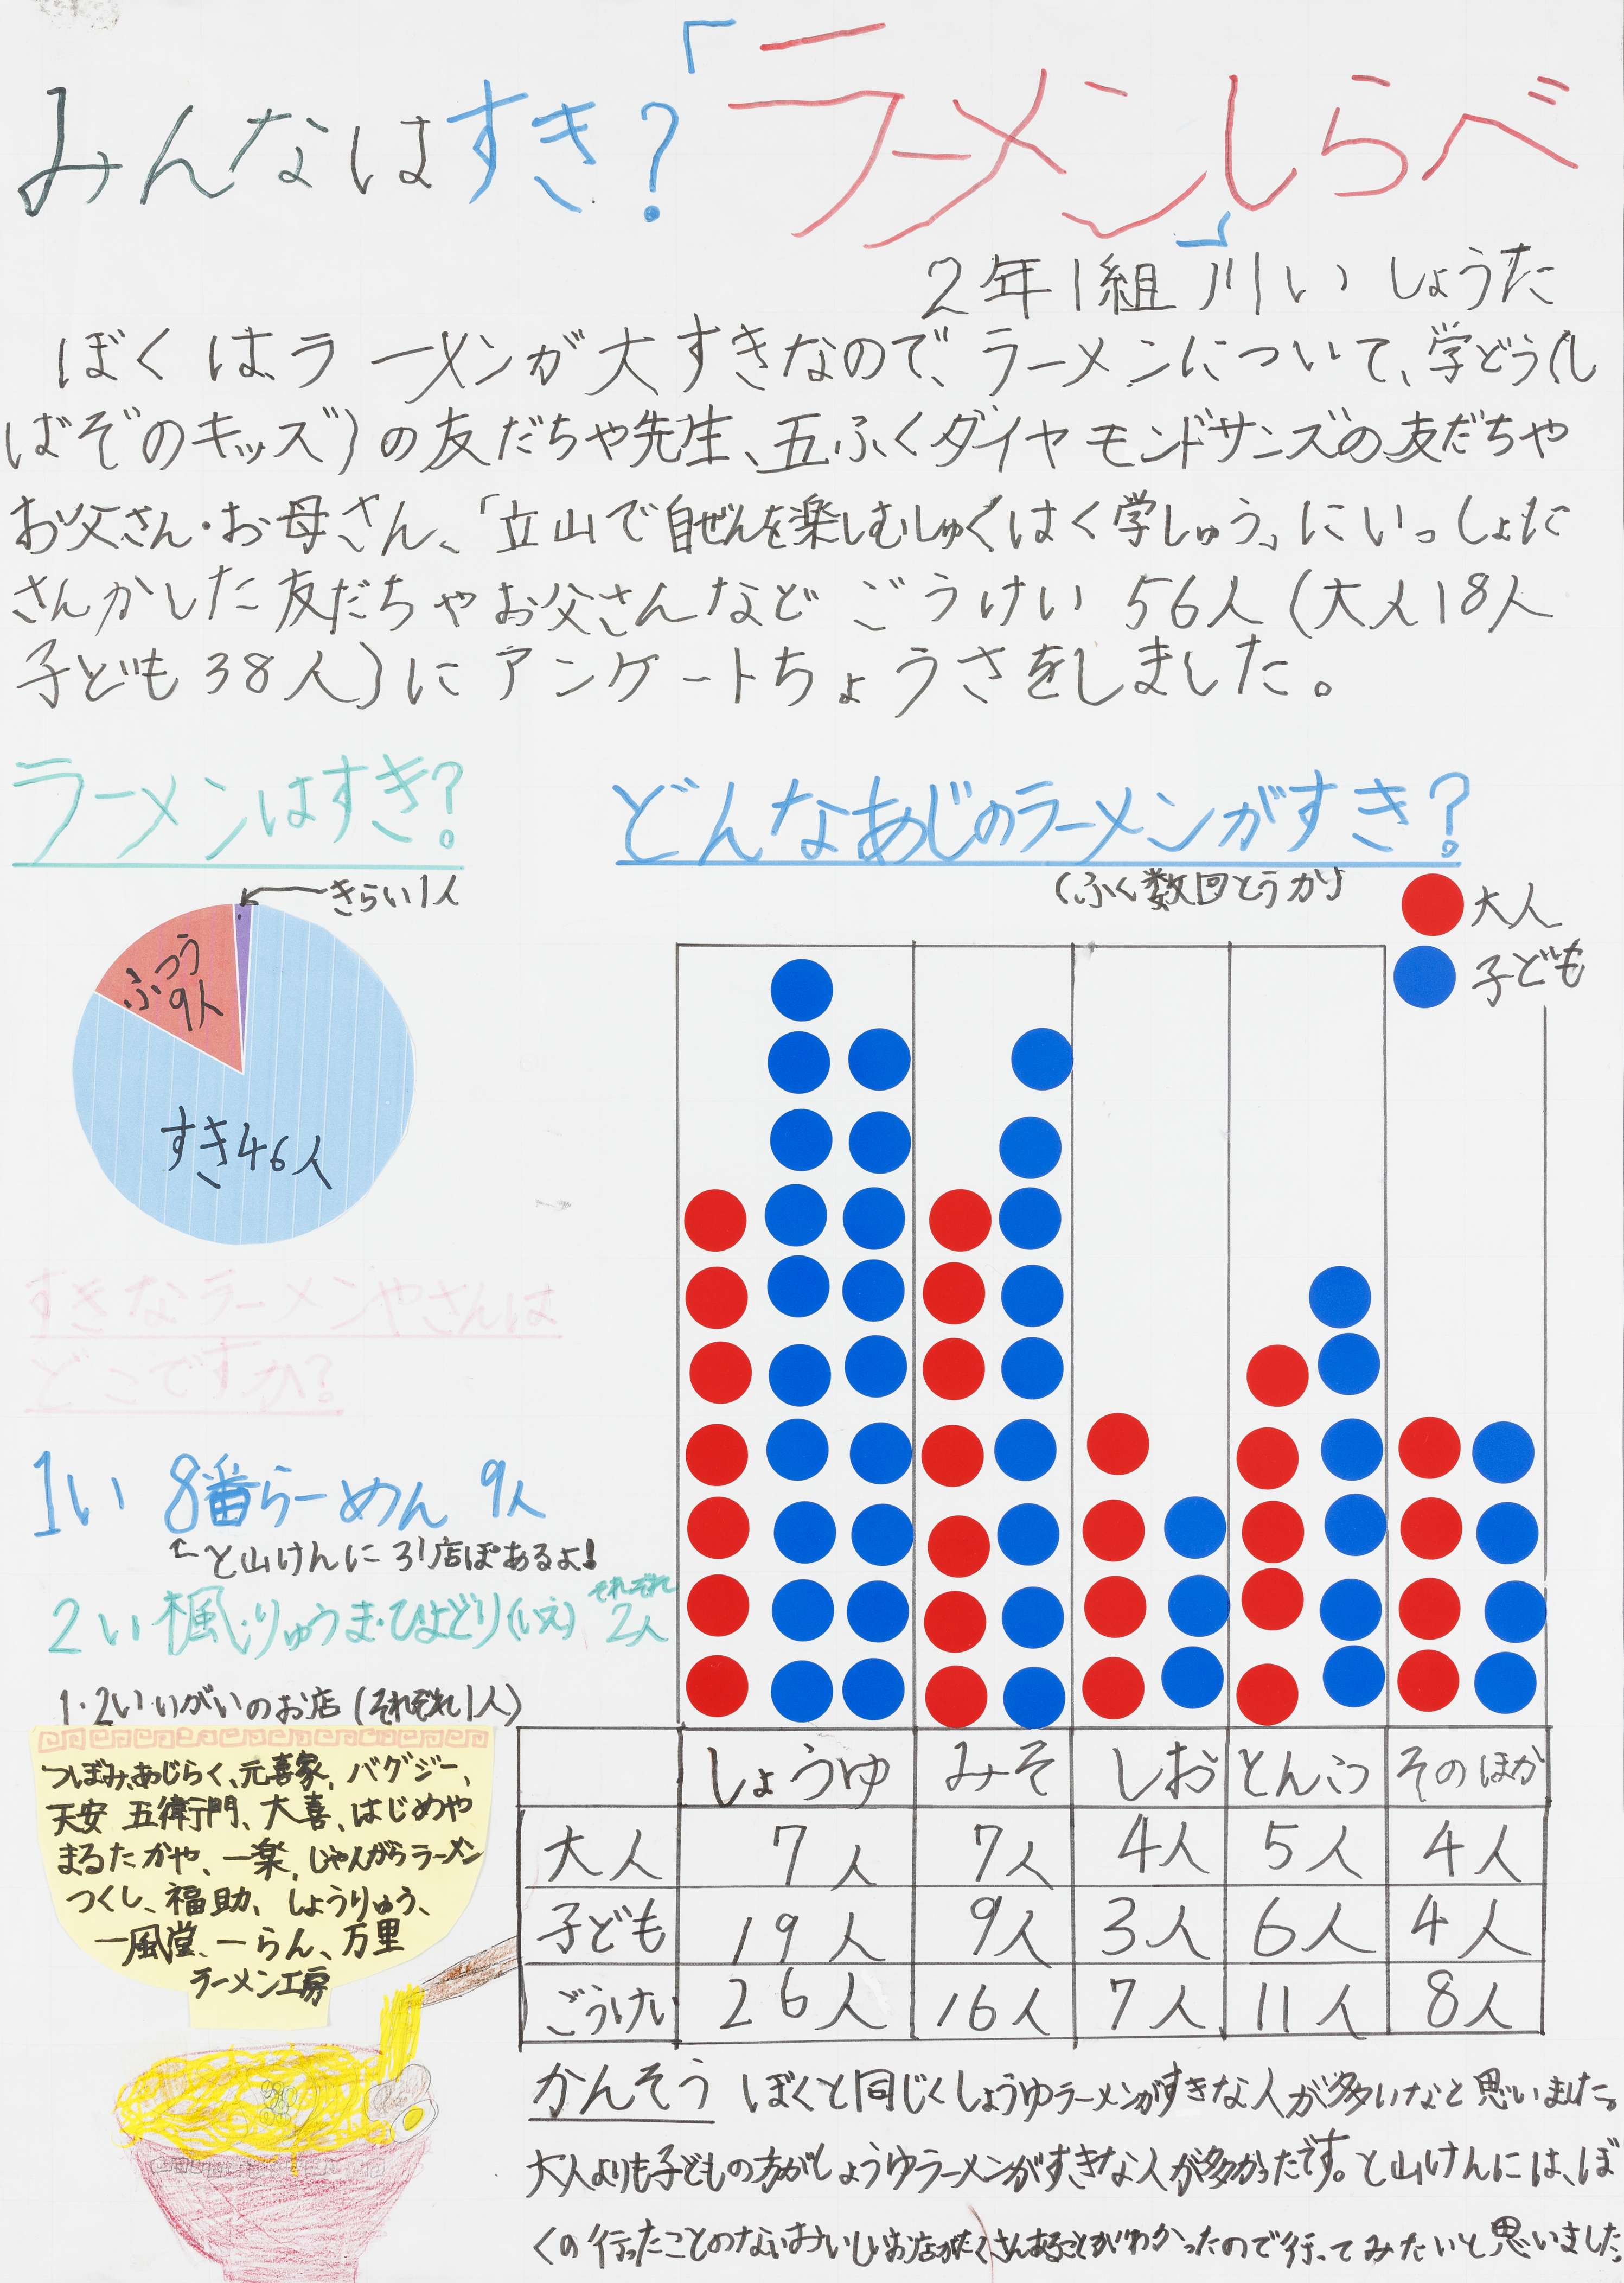 みんなはすき?「ラーメン」しらべ
2年1組 川い しょうた
ぼくはラーメンが大すきなので、ラーメンについて、学どう(し
ばぞのキッズ)の友だちや先生、五ふくダイヤモンドサンズの友だちや
お父さん・お母さん、「立山で自ぜんを楽しむしゅくはく学しゅう」にいっしょに
さんかした友だちやお父さんなど ごうけい 56人(大人18人
子ども38人)にアンケートちょうさをしました。
ラーメンはすき?
きらい1人
ふつう
9人
すき46人
すきなラーメンやさんは
どこですか?
1い 8番らーめん 9人
←と山けんに31店ぽあるよ!
2い 楓・りゅうま・ひよどり(いえ) それぞれ
2人
1・2いいがいのお店(それぞれ1人)
つぼみ、あじらく、元喜家、バグジー、
天安 五衛門、大喜、はじめや
まるたかや、一楽、じゃんがらラーメン
つくし、福助、しょうりゅう、
一風堂、一らん、万里
ラーメン工房
どんなあじのラーメンがすき?
(ふく数回とうかり
大人
子ども
しょうゆ みそ しお とんこつ そのほか
大人 7人 7人 4人 5人 4人
子ども 19人 9人 3人 6人 4人
ごうけい 26人 16人 7人 11人 8人
かんそう ぼくと同じくしょうゆラーメンがすきな人が多いなと思いました。
大人よりも子どもの方がしょうゆラーメンがすきな人が多かったです。と山けんには、ぼ
くの行ったことのないおいしいお店がたくさんあることがわかったので行ってみたいと思いました。